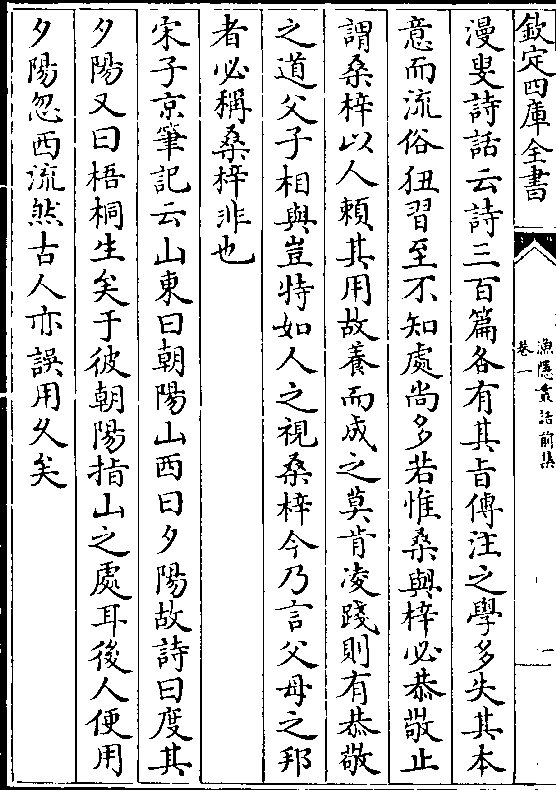 欽定四庫全書
漁隱叢話前集
卷一
一
漫叟詩話云詩三百篇各有其旨傳注之學多失其本
意而流俗狃習至不知處尚多若惟桑與梓必恭敬止
謂桑梓以人賴其用故養而成之莫肯凌踐則有恭敬
之道父子相與豈特如人之視桑梓今乃言父母之邦
者必稱桑梓非也
宋子京筆記云山東曰朝陽山西曰夕陽故詩曰度其
夕陽又曰梧桐生矣于彼朝陽指山之處耳後人便用
夕陽忽西流然古人亦誤用久矣